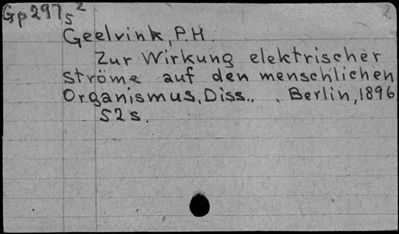 Gp 297 s 2
Geelvink, P.H.
Zur Wirkung elektrischer
ströme auf den menschlichen
Organismus, Diss.. . Berlin, 1896
52s.